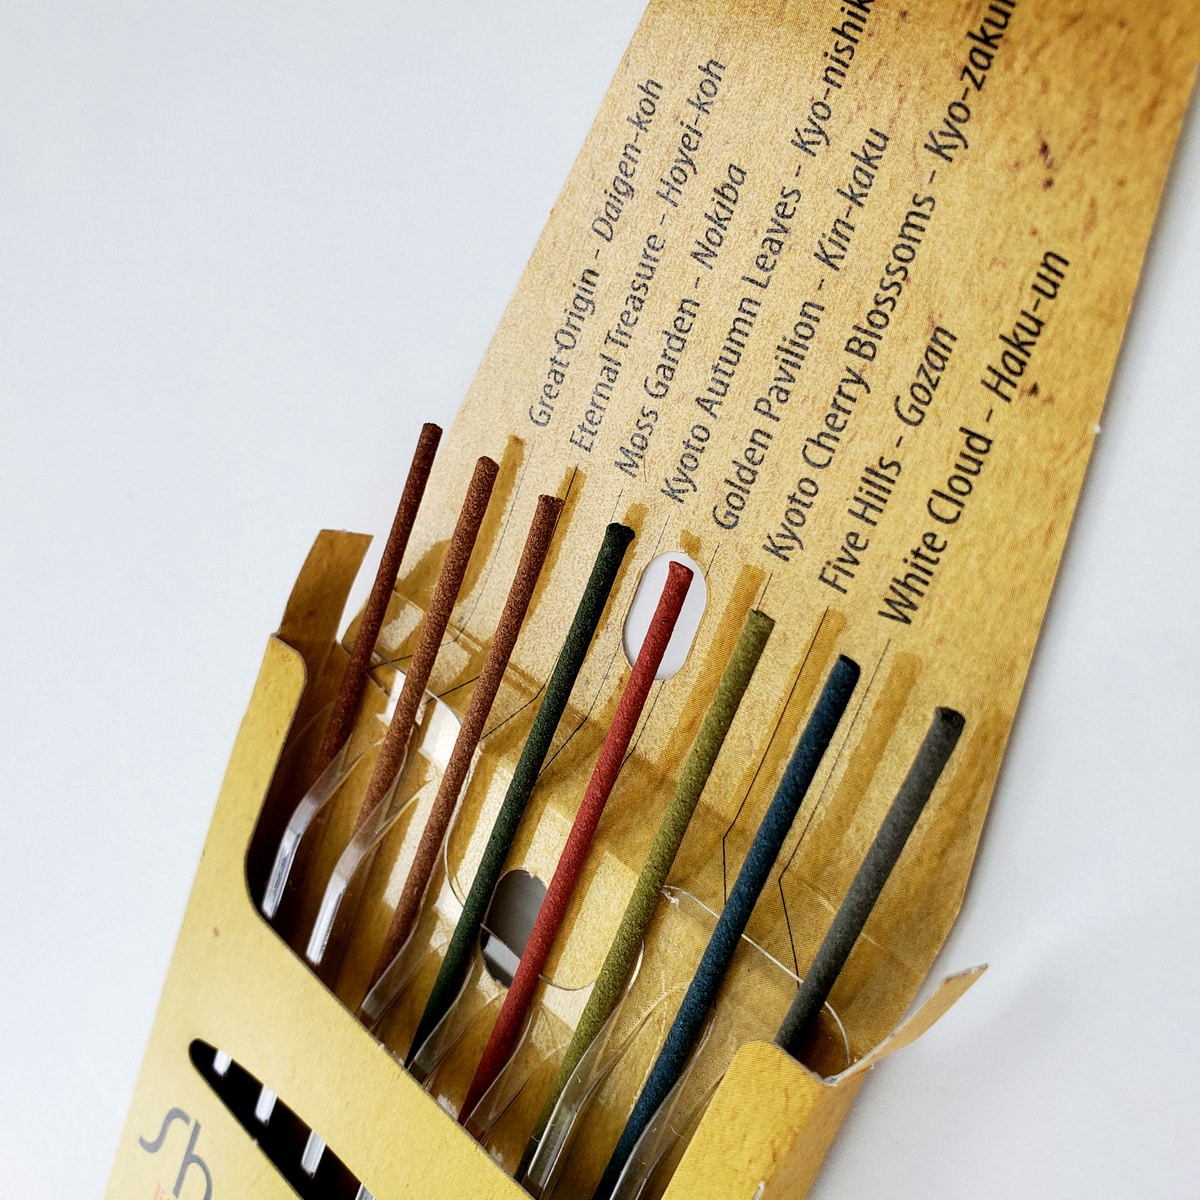 Great Origin - Daigen-koh
Eternal Treasure - Hoyei-koh
Moss Garden - Nokiba
Kyoto Autumn Leaves -
Golden Pavilion - Kin-kaku
Kyoto Cherry Blosssoms -
Five Hills - Gozan
White Cloud - Haku-un